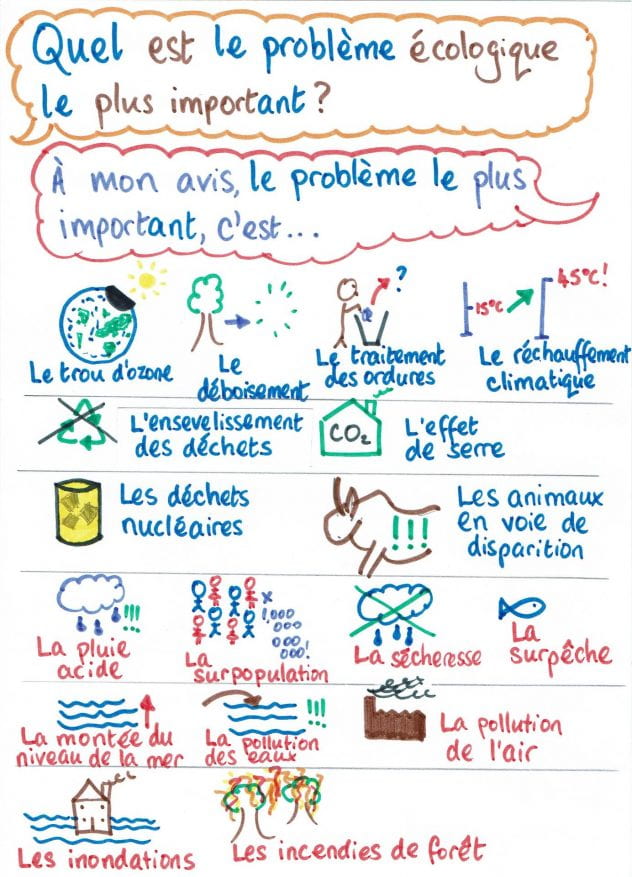 Quel est le problème écologique
le plus important ?
À mon avis, le problème le plus
important, c'est...
Le trou d'ozone
Le
déboisement
?
Le traitement
des ordures
15°C
45°C!
Le réchauffement
climatique
L'ensevelissement
des déchets
CO₂
L'effet
de serre
Les déchets
nucléaires
!!!
Les animaux
en voie de
disparition
!!!
La pluie
acide
x
1,000
000
000
000!
La
surpopulation
La sécheresse
La
surpêche
La montée du
niveau de la mer
!!!
La pollution
des eaux
La pollution
de l'air
Les inondations
Les incendies de forêt